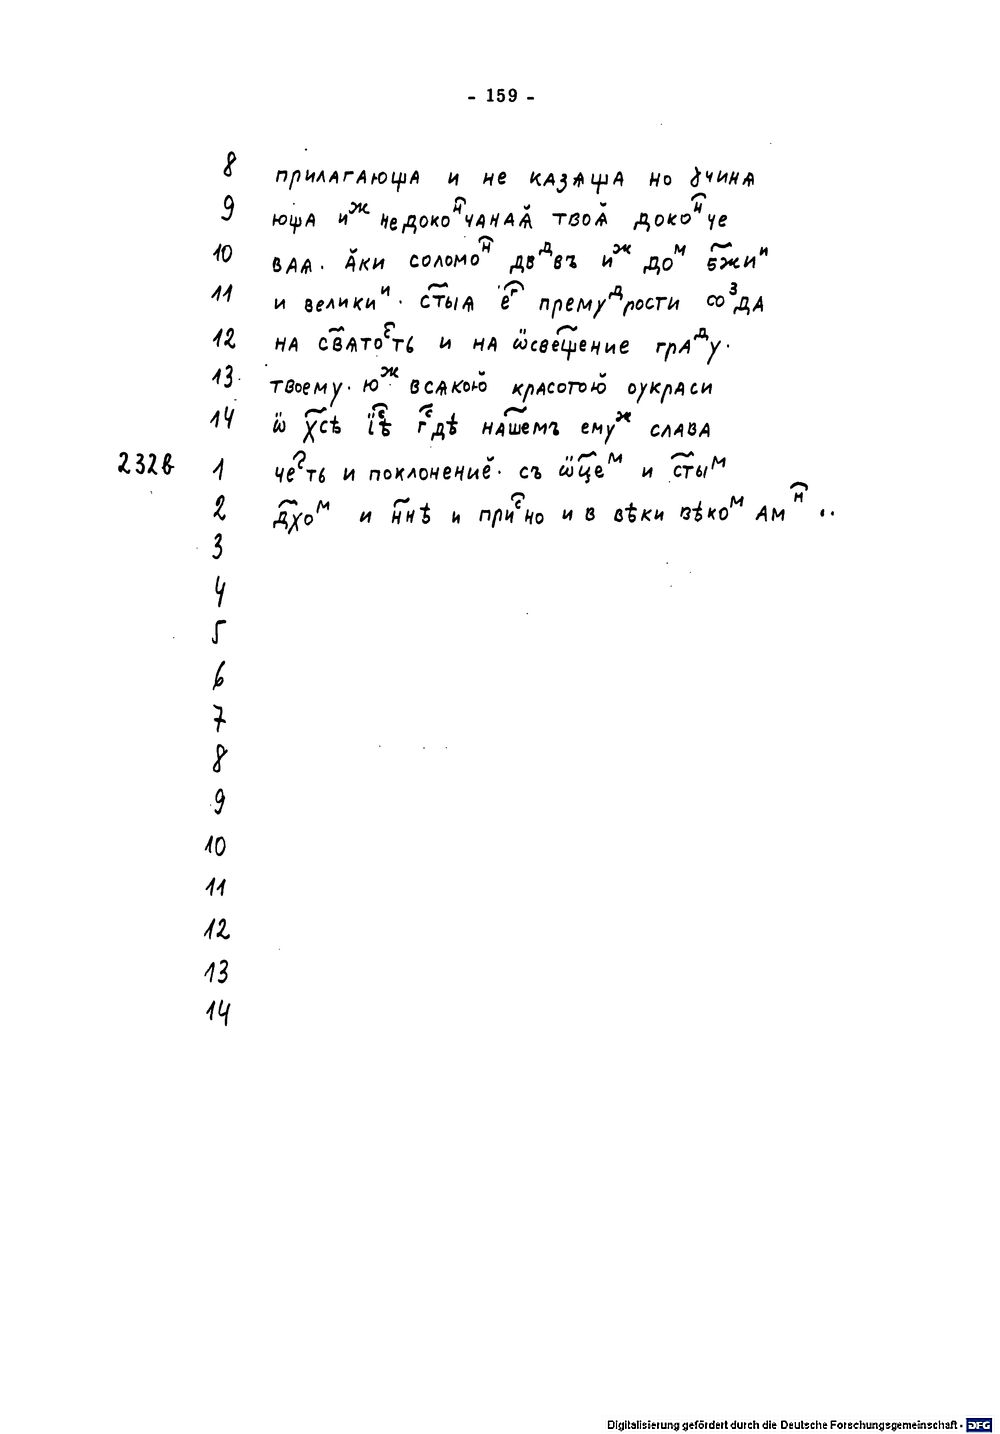 - 159 -
8 прилагающа и не казѧща но ꙋчинѧ
9 юща иⷤ недокоⷩ҇чанаѧ̆ твоѧ̆ докоⷩ҇че
10 ваѧ. ӑки соломоⷩ҇ двⷣвъ иⷤ доⷨ б҃жиⷩ
11 и великиⷩ · ст҃ыѧ еⷢ҇ премуⷣрости соⷥда
12 на св҃ѧтоⷭ҇ть и на ѡ̈свещ҃ение граⷣу·
13 твоему· юⷤ всѧкою̆ красотою̆ оукраси
14 ѡ̈ х҃сѣ їⷭ҇ѣ гⷭ҇дѣ наш҃емъ емуⷤ слава
232в 1 чеⷭ҇ть и поклонениӗ· съ ѡ̈ц҃еⷨ и ст҃ыⷨ
2 дх҃оⷨ и н҃нѣ и приⷭ҇но и в вѣки вѣкоⷨ амⷩ҇ ..
3
4
5
6
7
8
9
10
11
12
13
14
Digitalisierung gefördert durch die Deutsche Forschungsgemeinschaft - DFG